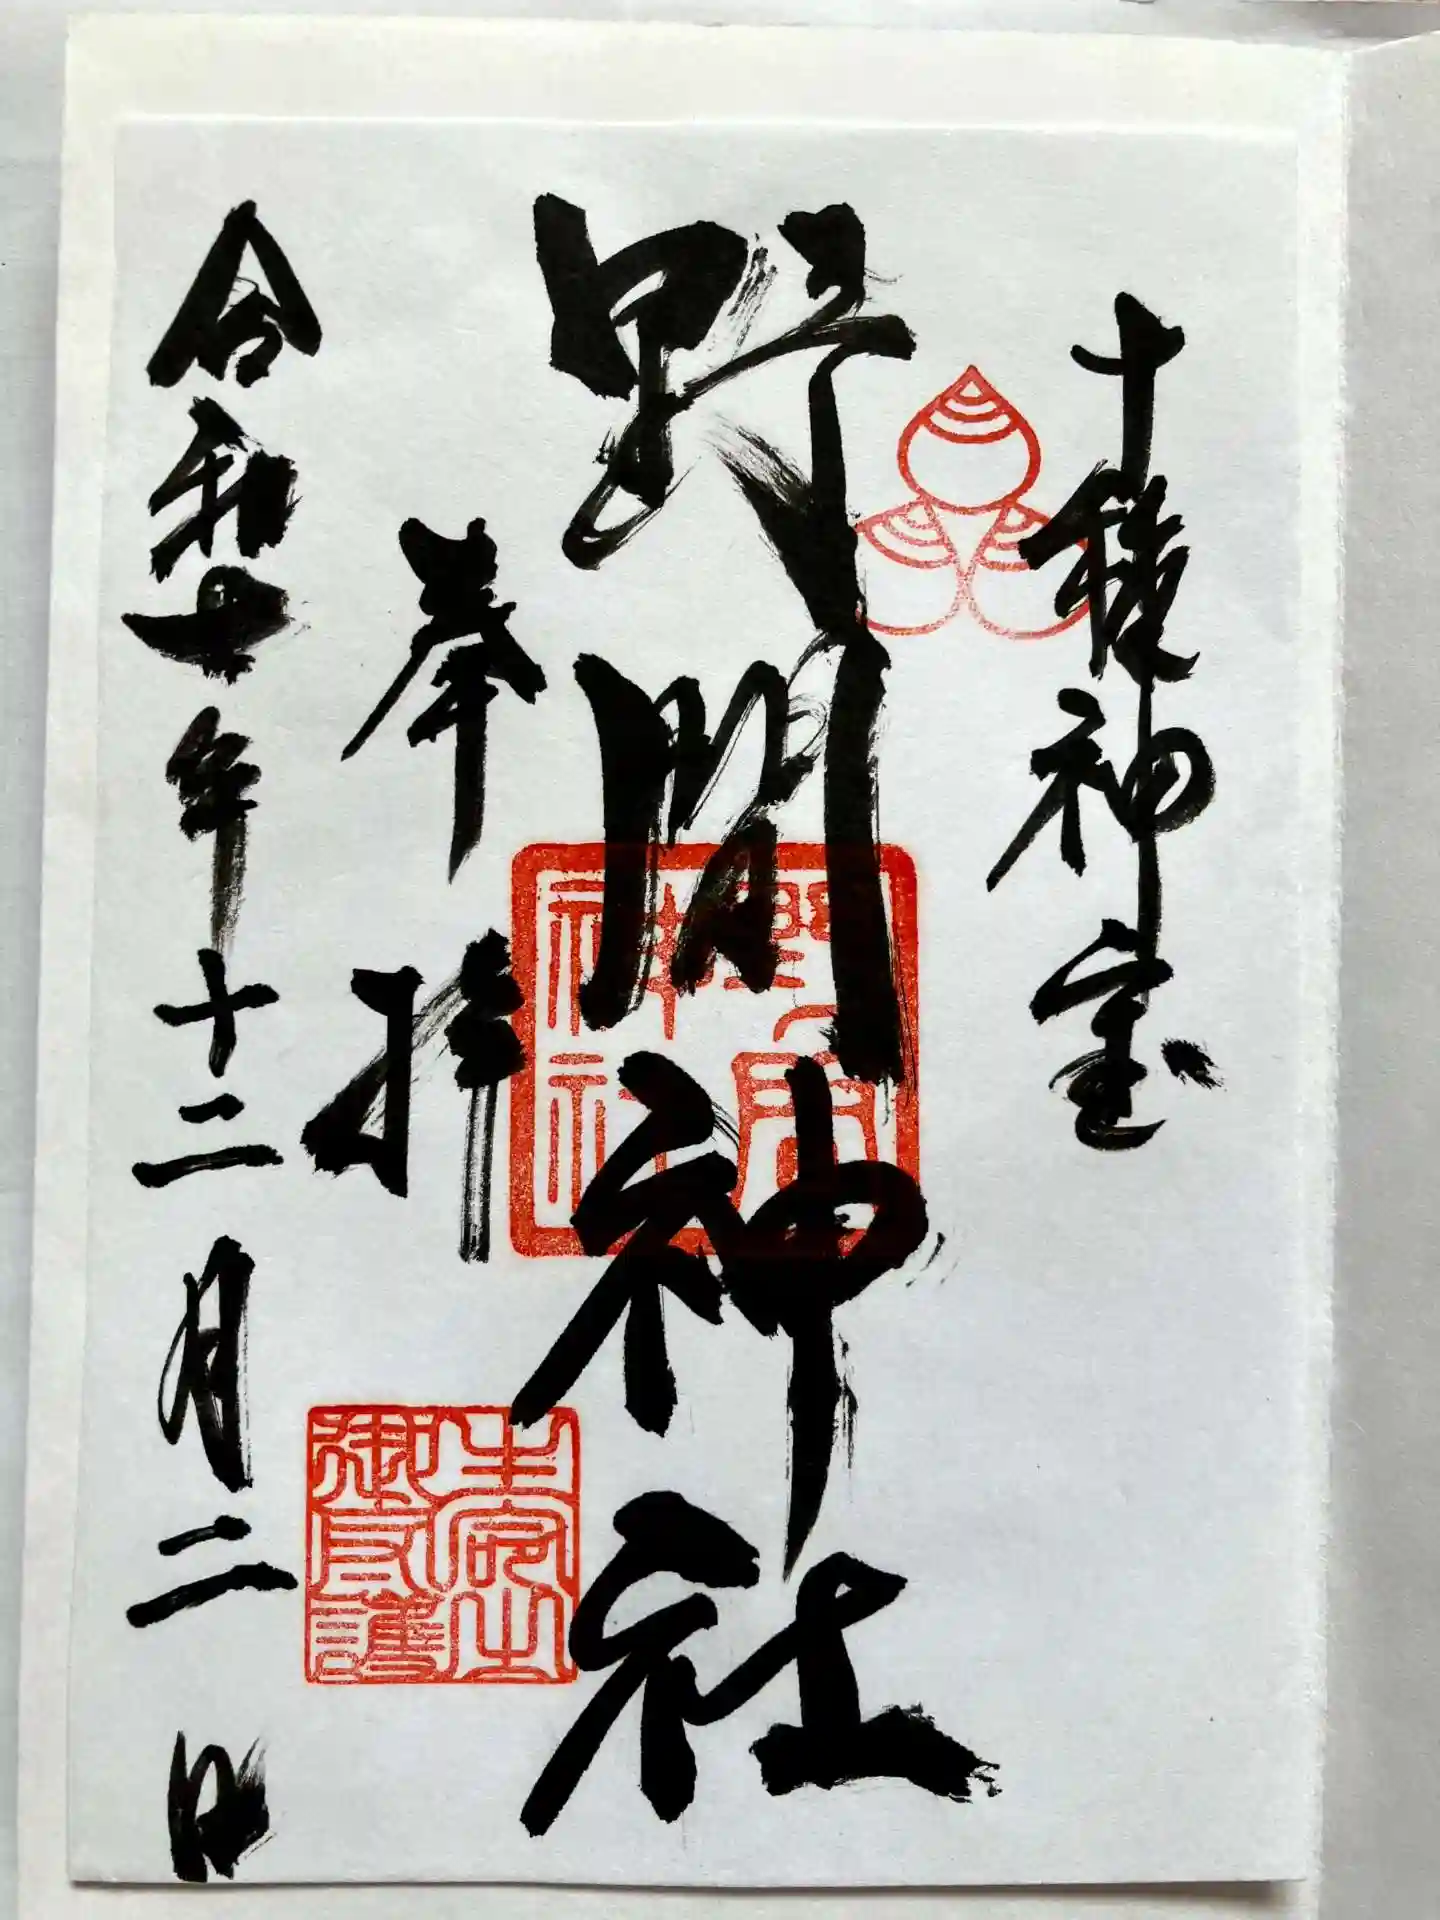 十種神宝
野間神社
奉拝
令和七年十二月二日
野間
神社